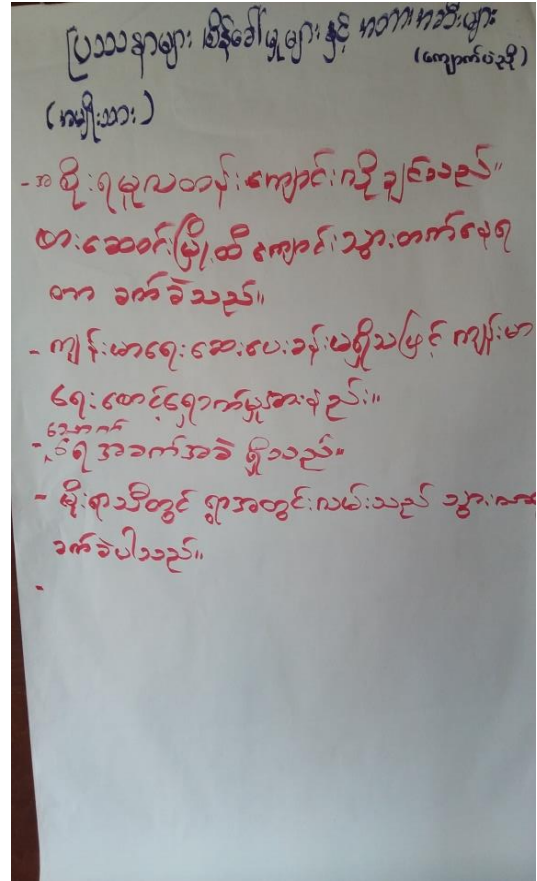 ပြဿနာများ စိန်ခေါ်မှုများ နှင့် အတားအဆီးများ
(ကျောက်ပုံညို)
(အမျိုးသား)
- အစိုးရမူလတန်းကျောင်းလိုချင်သည်။
ဖားဆောင်းမြို့ထိ ကျောင်းသွားတက်နေရ
တာ ခက်ခဲသည်။
- ကျန်းမာရေးဆေးပေးခန်းမရှိသဖြင့် ကျန်းမာ
ရေးစောင့်ရှောက်မှုအားနည်း။
သောက်
- ရေအခက်အခဲ ရှိသည်။
- မိုးရာသီတွင် ရွာအတွင်းလမ်းသည် သွားလာ
ခက်ခဲပါသည်။
-